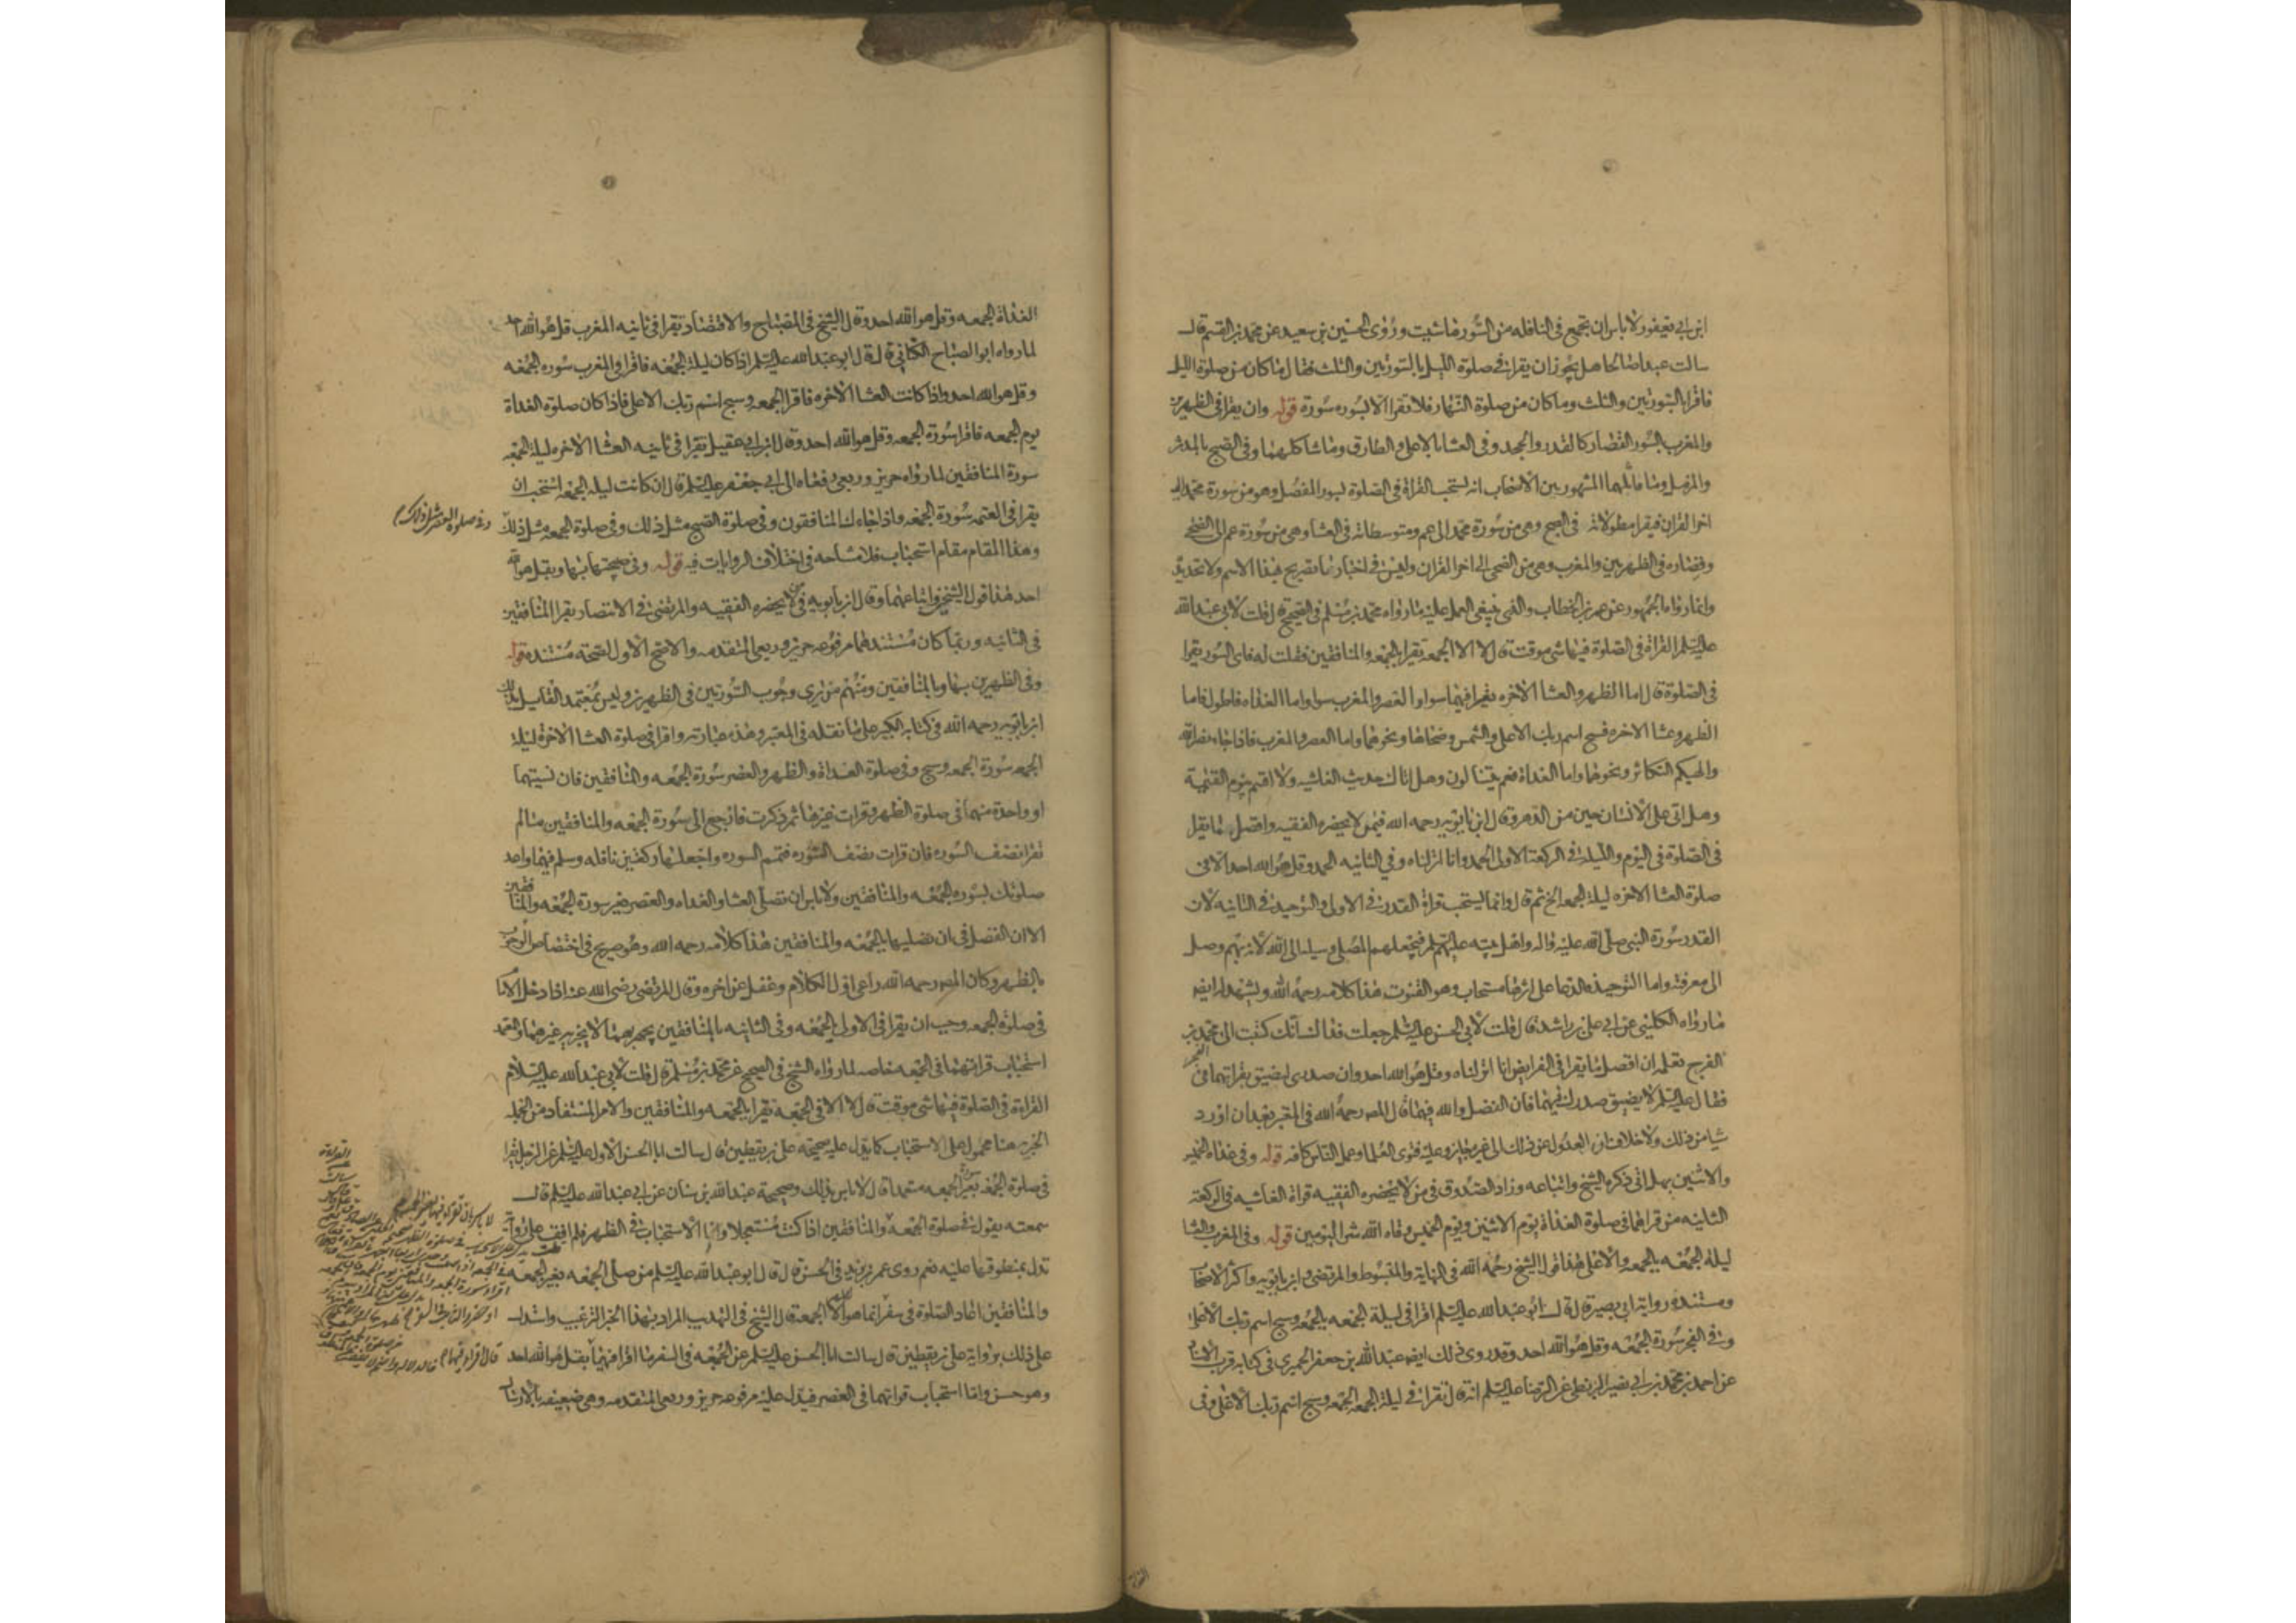 ابن ابي يعفور لا باس ان تجمع في النافله من السور ما شيت وروى الحسين بن سعيد عن محمد بن القسم قال
سالت عبدا صالحا هل يجوز ان يقرا في صلوة الليل بالسورتين والثلث فقال ما كان من صلوة الليل
فاقرا بالسورتين والثلث وما كان من صلوة النهار فلا تقرا الا بسوره سورة قوله وان يقرا في الظهرين
والمغرب بالسور القصار كالقدر والجحد وفي العشا بالاعلى والطارق وما شاكلهما وفي الصبح بالمدثر
والمزمل وما ماثلهما المشهور بين الاصحاب انه يستحب القراة في الصلوة بسور المفصل وهو من سورة محمد الى
اخر القران فيقرا مطولاته في الصبح وهي من سورة محمد الى عم ومتوسطاته في العشا وهي من سورة عم الى الضحى
وقصاره في الظهرين والمغرب وهي من الضحى الى اخر القران وليس في اخبارنا تصريح بهذا الاسم ولا تحديده
وانما رواه الجمهور عن عمر بن الخطاب والذي ينبغي العمل عليه ما رواه محمد بن مسلم في الصحيح قال قلت لابي عبد الله
عليه السلم القراة في الصلوة فيها شي موقت قال لا الا الجمعة تقرا بالجمعه والمنافقين فقلت له فاي السور يقرا
في الصلوة قال اما الظهر والعشا الاخره يقرا فيهما سوا والعصر والمغرب سوا واما الغداه فاطول فاما
الظهر وعشا الاخره فسبح اسم ربك الاعلى والشمس وضحاها ونحوهما واما العصر والمغرب فاذا جاء نصر الله
والهيكم التكاثر ونحوهما واما الغداة فعم يتسالون وهل اتاك حديث الغاشيه ولا اقسم بيوم القيمة
وهل اتى على الانسان حين من الدهر وقال ابن بابويه رحمه الله فيمن لا يحضره الفقيه وافضل ما يقرا
في الصلوة في اليوم والليلة في الركعة الاولى الحمد وانا انزلناه وفي الثانيه الحمد وقل هو الله احد الا في
صلوة العشا الاخره ليلة الجمعه الخ ثم قال وانما يستحب قراة القدر في الاولى والتوحيد في الثانيه لان
القدر سورة النبي صلى الله عليه واله واهل بيته عليهم السلم فيجعلهم المصلي وسيله الى الله لانه بهم وصل
الى معرفته واما التوحيد فالدعا على اثرها مستجاب وهو القنوت هذا كلامه رحمه الله ويشهد له ايضه
ما رواه الكليني عن ابي علي بن راشد قال قلت لابي الحسن عليه السلم جعلت فداك انك كتبت الى محمد بن
الفرج تعلمه ان افضل ما يقرا في الفرايض انا انزلناه وقل هو الله احد وان صدري ليضيق بقراتهما في الفجر
فقال عليه السلم لا يضيق صدرك بهما فان الفضل والله فيهما قال المصه رحمه الله في المعتبر بعد ان اورد
شيا من ذلك ولا خلاف ان العدول عن ذلك الى غيره جايز وعليه فتوى العلما وعمل الناس كافه قوله وفي غداة الخميس
والاثنين بهل اتى ذكره الشيخ واتباعه وزاد الصدوق في من لا يحضره الفقيه قراة الغاشيه في الركعة
الثانيه من قراهما في صلوة الغداة يوم الاثنين ويوم الخميس وقاه الله شر اليومين قوله وفي المغرب والعشا
ليلة الجمعه بالجمعه والاعلى هذا قول الشيخ رحمه الله في النهاية والمبسوط والمرتضى وابن بابويه واكثر الاصحاب
ومستنده رواية ابي بصير قال قال ابو عبد الله عليه السلم اقرا في ليلة الجمعه بالجمعه وسبح اسم ربك الاعلى
وفي الفجر سورة الجمعه وقل هو الله احد وقد روى ذلك ايضه عبد الله بن جعفر الحميري في كتابه قرب الاسناد
عن احمد بن محمد بن ابي نصير البزنطي عن الرضا عليه السلم انه قال تقرا في ليلة الجمعه الجمعه وسبح اسم ربك الاعلى وفي
الغداة الجمعه وقل هو الله احد وقال الشيخ في المصباح والاقتصاد يقرا في ثانيه المغرب قل هو الله احد
لما رواه ابو الصباح الكناني قال قال ابو عبد الله عليه السلم اذا كان ليلة الجمعه فاقرا في المغرب سوره الجمعه
وقل هو الله احد واذا كانت العشا الاخره فاقرا الجمعه وسبح اسم ربك الاعلى فاذا كان صلوة الغداة
يوم الجمعه فاقرا سورة الجمعه وقل هو الله احد وقال ابن ابي عقيل يقرا في ثانيه العشا الاخره ليلة الجمعه
سورة المنافقين لما رواه حريز وربعي رفعاه الى ابي جعفر عليه السلم قال ان كانت ليلة الجمعه استحب ان
يقرا في العتمه سورة الجمعه واذا جاءك المنافقون وفي صلوة الصبح مثل ذلك وفي صلوة الجمعه مثل ذلك
وفي صلوة العصر مثل ذلك
وهذا المقام مقام استحباب فلا مشاحه في اختلاف الروايات فيه قوله وفي صبحتها بها وبقل هو الله
احد هذا قول الشيخ واتباعهما وقال ابن بابويه في من لا يحضره الفقيه والمرتضى في الانتصار يقرا المنافقين
في الثانيه وربما كان مستندهما مرفوعه حريز وربعي المتقدمه والاصح الاول لصحة مستنده قوله
وفي الظهرين بها وبالمنافقين ومنهم من يرى وجوب السورتين في الظهرين وليس بمعتمد القايل بذلك
ابن بابويه رحمه الله في كتابه الكبير على ما نقله في المعتبر وهذه عبارته واقرا في صلوة العشا الاخرة ليلة
الجمعه سورة الجمعه وسبح وفي صلوة الغداة والظهر والعصر سورة الجمعه والمنافقين فان نسيتهما
او واحدة منهما في صلوة الظهر وقرات غيرهما ثم ذكرت فارجع الى سورة الجمعه والمنافقين ما لم
تقرا نصف السوره فان قرات نصف السوره فتمم السوره واجعلها ركعتين نافله وسلم فيهما واعد
صلوتك بسوره الجمعه والمنافقين ولا باس ان تصلي العشا والغداه والعصر بغير سورة الجمعه والمنافقين
الا ان الفضل في ان تصليها بالجمعه والمنافقين هذا كلامه رحمه الله وهو صريح في اختصاص الوجوب
بالظهر وكان المصه رحمه الله راعى اول الكلام وغفل عن اخره وقال المرتضى رضي الله عنه اذا دخل الامام
في صلوة الجمعه وجب ان يقرا في الاولى بالجمعه وفي الثانيه بالمنافقين يجهر بهما لا يجزيه غيرهما والمعتمد
استحباب قراتهما في الجمعه خاصه لما رواه الشيخ في الصحيح عن محمد بن مسلم قال قلت لابي عبد الله عليه السلام
القراءة في الصلوة فيها شي موقت قال لا الا في الجمعه تقرا بالجمعه والمنافقين والامر المستفاد من الجمله
الخبريه هنا محمول على الاستحباب كما يدل عليه صحيحة علي بن يقطين قال سالت ابا الحسن الاول عليه السلم عن الرجل يقرا
في صلوة الجمعه بغير سورة الجمعه متعمدا قال لا باس بذلك وصحيحة عبد الله بن سنان عن ابي عبد الله عليه السلم قال
سمعته يقول في صلوة الجمعه والمنافقين اذا كنت مستعجلا واما الاستحباب في الظهر فلم اقف على رواية
لا باس بان تقرا فيها بغير الجمعه
تدل بمنطوقها عليه نعم روى عمر بن يزيد في الحسن قال قال ابو عبد الله عليه السلم من صلى الجمعه بغير الجمعه
والمنافقين اعاد الصلوة في سفر انما هو الا الجمعة قال الشيخ في التهذيب المراد بهذا الخبر الترغيب واستدل
على ذلك برواية علي بن يقطين قال سالت ابا الحسن عليه السلم عن الجمعه في السفر ما اقرا فيهما قال اقراء فيهما بقل هو الله احد
وهو حسن واما استحباب قراتهما في العصر فيدل عليه مرفوعه حريز وربعي المتقدمه وهي ضعيفه بالارسال